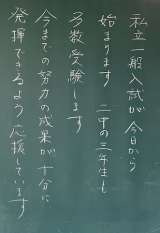 私立一般入試が今日から
始まります 二中の三年生も
多数受験します
今までの努力の成果が十分に
発揮できるよう応援しています